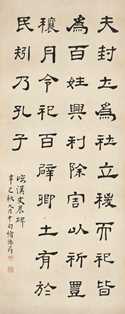 夫封土為社立稷而祀皆
為百姓興利除害以祈豐
穰月令祀百辟卿士有益於
民矧乃孔子
臨漢史晨碑
辛巳秋八月中旬